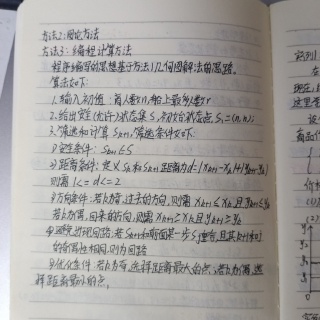 方法2:图论方法
方法3:编程计算方法
程序编写的思想基于方法1几何图解法的思路.
算法如下:
1.输入初值:商人数n,船上最多人数r
2.给出安全(允许)状态集S,初始状态点S₁=(n,n);
3.筛选和计算Sₖ₊₁,筛选条件如下:
①安全条件:Sₖ₊₁∈S
②距离条件:定义Sₖ和Sₖ₊₁距离为d=|xₖ-xₖ₊₁|+|yₖ₊₁-yₖ|
则需1<=d<=2
③方向条件:若k为奇,过去的方向,则需xₖ₊₁≤xₖ且yₖ₊₁≤yₖ
若k为偶,回来的方向,则需xₖ₊₁≥xₖ且yₖ₊₁≥yₖ
④避免出现回路:若Sₖ₊₁和前面某一步Sⱼ重合,且其k+1和j
的奇偶性相同,则为回路
⑤优化条件:若k为奇,选择距离最大的点;若k为偶,选
择距离最小的点.